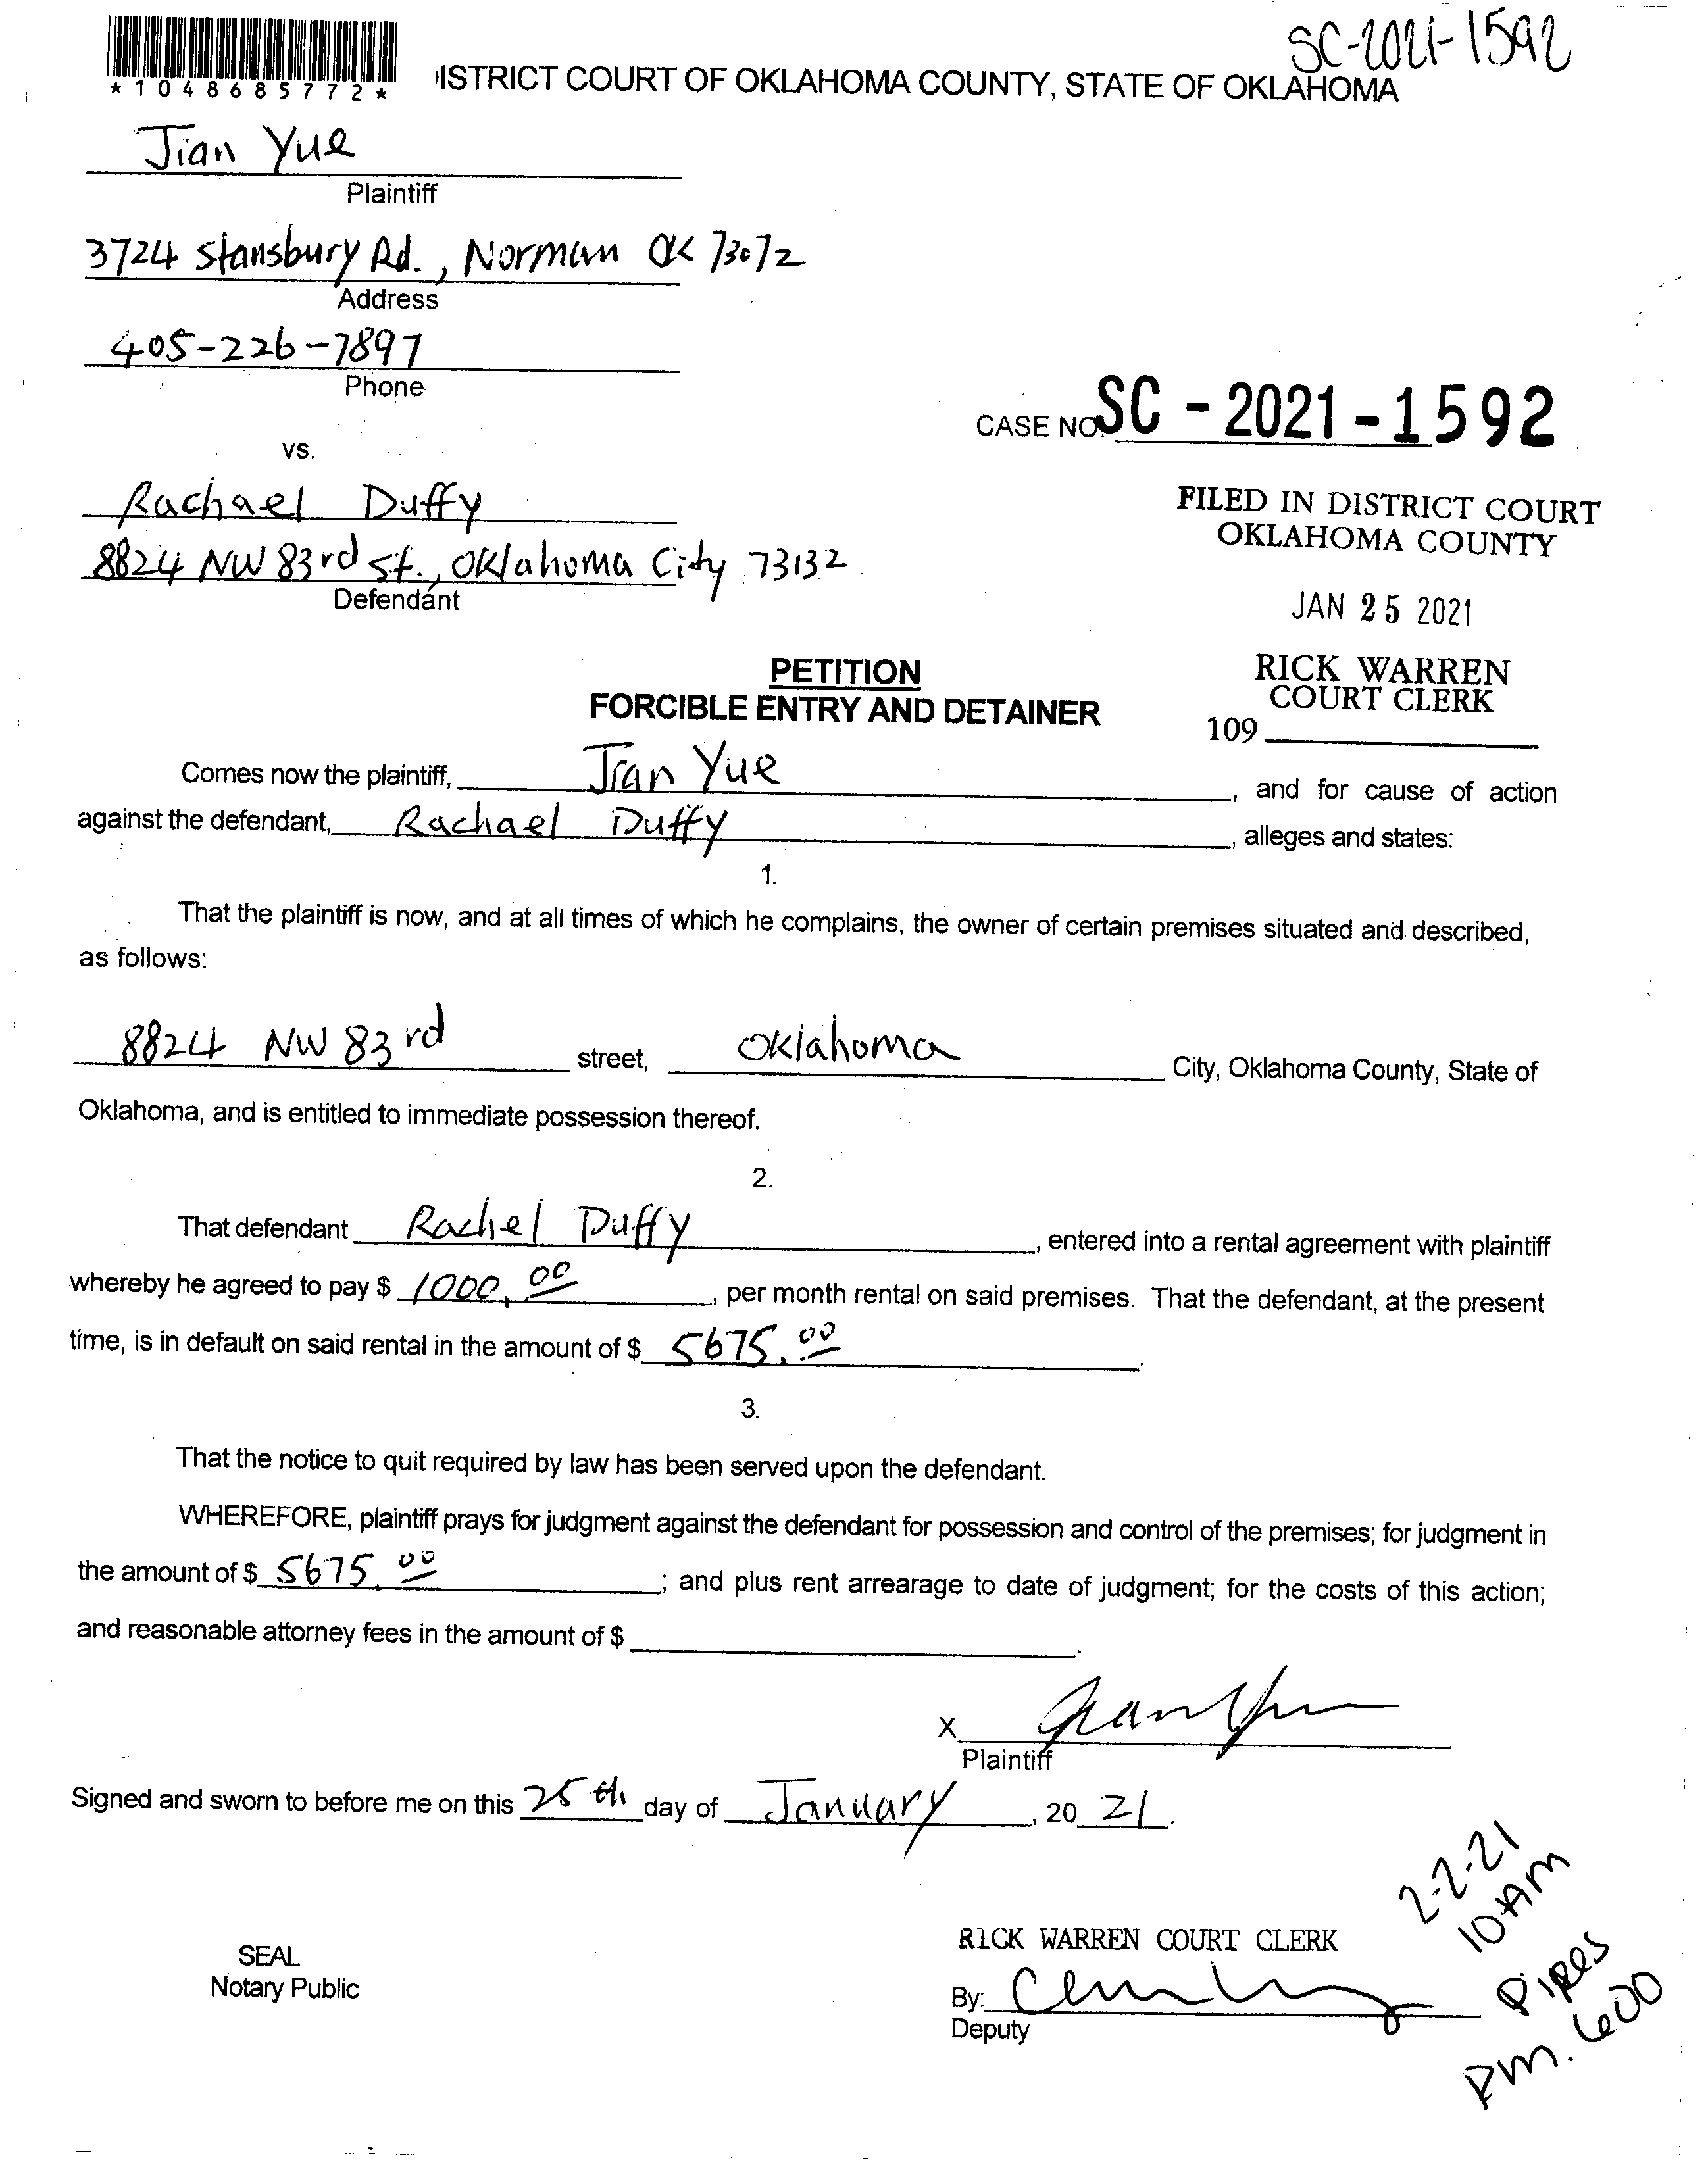 SC-2021-1592
*1048685772*
ISTRICT COURT OF OKLAHOMA COUNTY, STATE OF OKLAHOMA
Jian Yue
Plaintiff
3724 Stansbury Rd., Norman OK 73072
Address
405-226-7897
Phone
CASE NO. SC-2021-1592
vs.
Rachael Duffy
8824 NW 83rd St., Oklahoma City 73132
Defendant
FILED IN DISTRICT COURT
OKLAHOMA COUNTY
JAN 25 2021
RICK WARREN
COURT CLERK
109
PETITION
FORCIBLE ENTRY AND DETAINER
Comes now the plaintiff, Jian Yue, and for cause of action
against the defendant, Rachael Duffy, alleges and states:
1.
That the plaintiff is now, and at all times of which he complains, the owner of certain premises situated and described,
as follows:
8824 NW 83rd street, Oklahoma City, Oklahoma County, State of
Oklahoma, and is entitled to immediate possession thereof.
2.
That defendant Rachel Duffy, entered into a rental agreement with plaintiff
whereby he agreed to pay $ 1000.00, per month rental on said premises. That the defendant, at the present
time, is in default on said rental in the amount of $ 5675.00.
3.
That the notice to quit required by law has been served upon the defendant.
WHEREFORE, plaintiff prays for judgment against the defendant for possession and control of the premises; for judgment in
the amount of $ 5675.00; and plus rent arrearage to date of judgment; for the costs of this action;
and reasonable attorney fees in the amount of $
X Jian Yue
Plaintiff
Signed and sworn to before me on this 25th day of January, 20 21.
SEAL
Notary Public
RICK WARREN COURT CLERK
By:
Deputy
2-2-21
10 AM
Pipes
Rm. 600